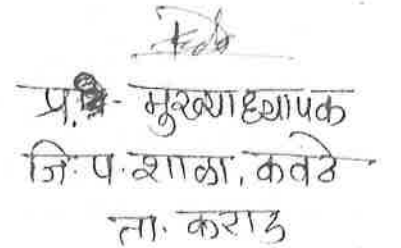 प्र. मुख्याध्यापक
जि. प. शाळा, कवठे
ता. कराड